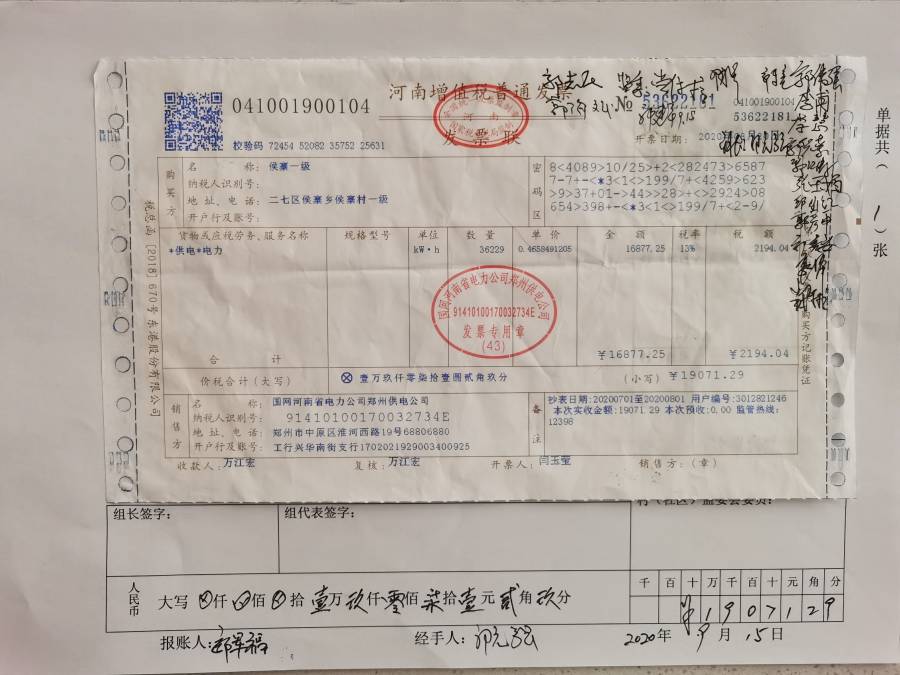 河南增值税普通发票
041001900104
53622181
041001900104
53622181
校验码 72454 52082 35752 25631
发票联
开票日期:
购买方
名 称: 侯寨一级
纳税人识别号:
地址、电话: 二七区侯寨乡侯寨村一级
开户行及账号:
密码区
8<4089>10/25>+2<282473>6587
7-7+-<*3<1<>199/7+<4259>623
>9>37+01-44>>28+<>2924>08
654>398+-<*3<1<>199/7+<2-9/
货物或应税劳务、服务名称 规格型号 单位 数量 单价 金额 税率 税额
*供电*电力 kW·h 36229 0.4658491205 16877.25 13% 2194.04
国网河南省电力公司郑州供电公司
91410100170032734E
发票专用章
(43)
合 计 ¥16877.25 ¥2194.04
价税合计(大写) ⊗ 壹万玖仟零柒拾壹圆贰角玖分 (小写) ¥19071.29
销售方
名 称: 国网河南省电力公司郑州供电公司
纳税人识别号: 91410100170032734E
地址、电话: 郑州市中原区淮河西路19号68806880
开户行及账号: 工行兴华南街支行1702021929003400925
备注
抄表日期:20200701至20200801 用户编号:3012821246
本次实收金额:19071.29 本次预收:0.00 监管热线:
12398
收款人: 万江宏 复核: 万江宏 开票人: 闫玉莹 销售方:(章)
税总函[2018]670号东港股份有限公司
购买方记账凭证
单据共( 1 )张
组长签字: 组代表签字:
人民币 大写 ⊗仟⊗佰⊗拾壹万玖仟零佰柒拾壹元贰角玖分
千百十万千百十元角分
¥1907129
报账人: 经手人:
2020年 9月 15日